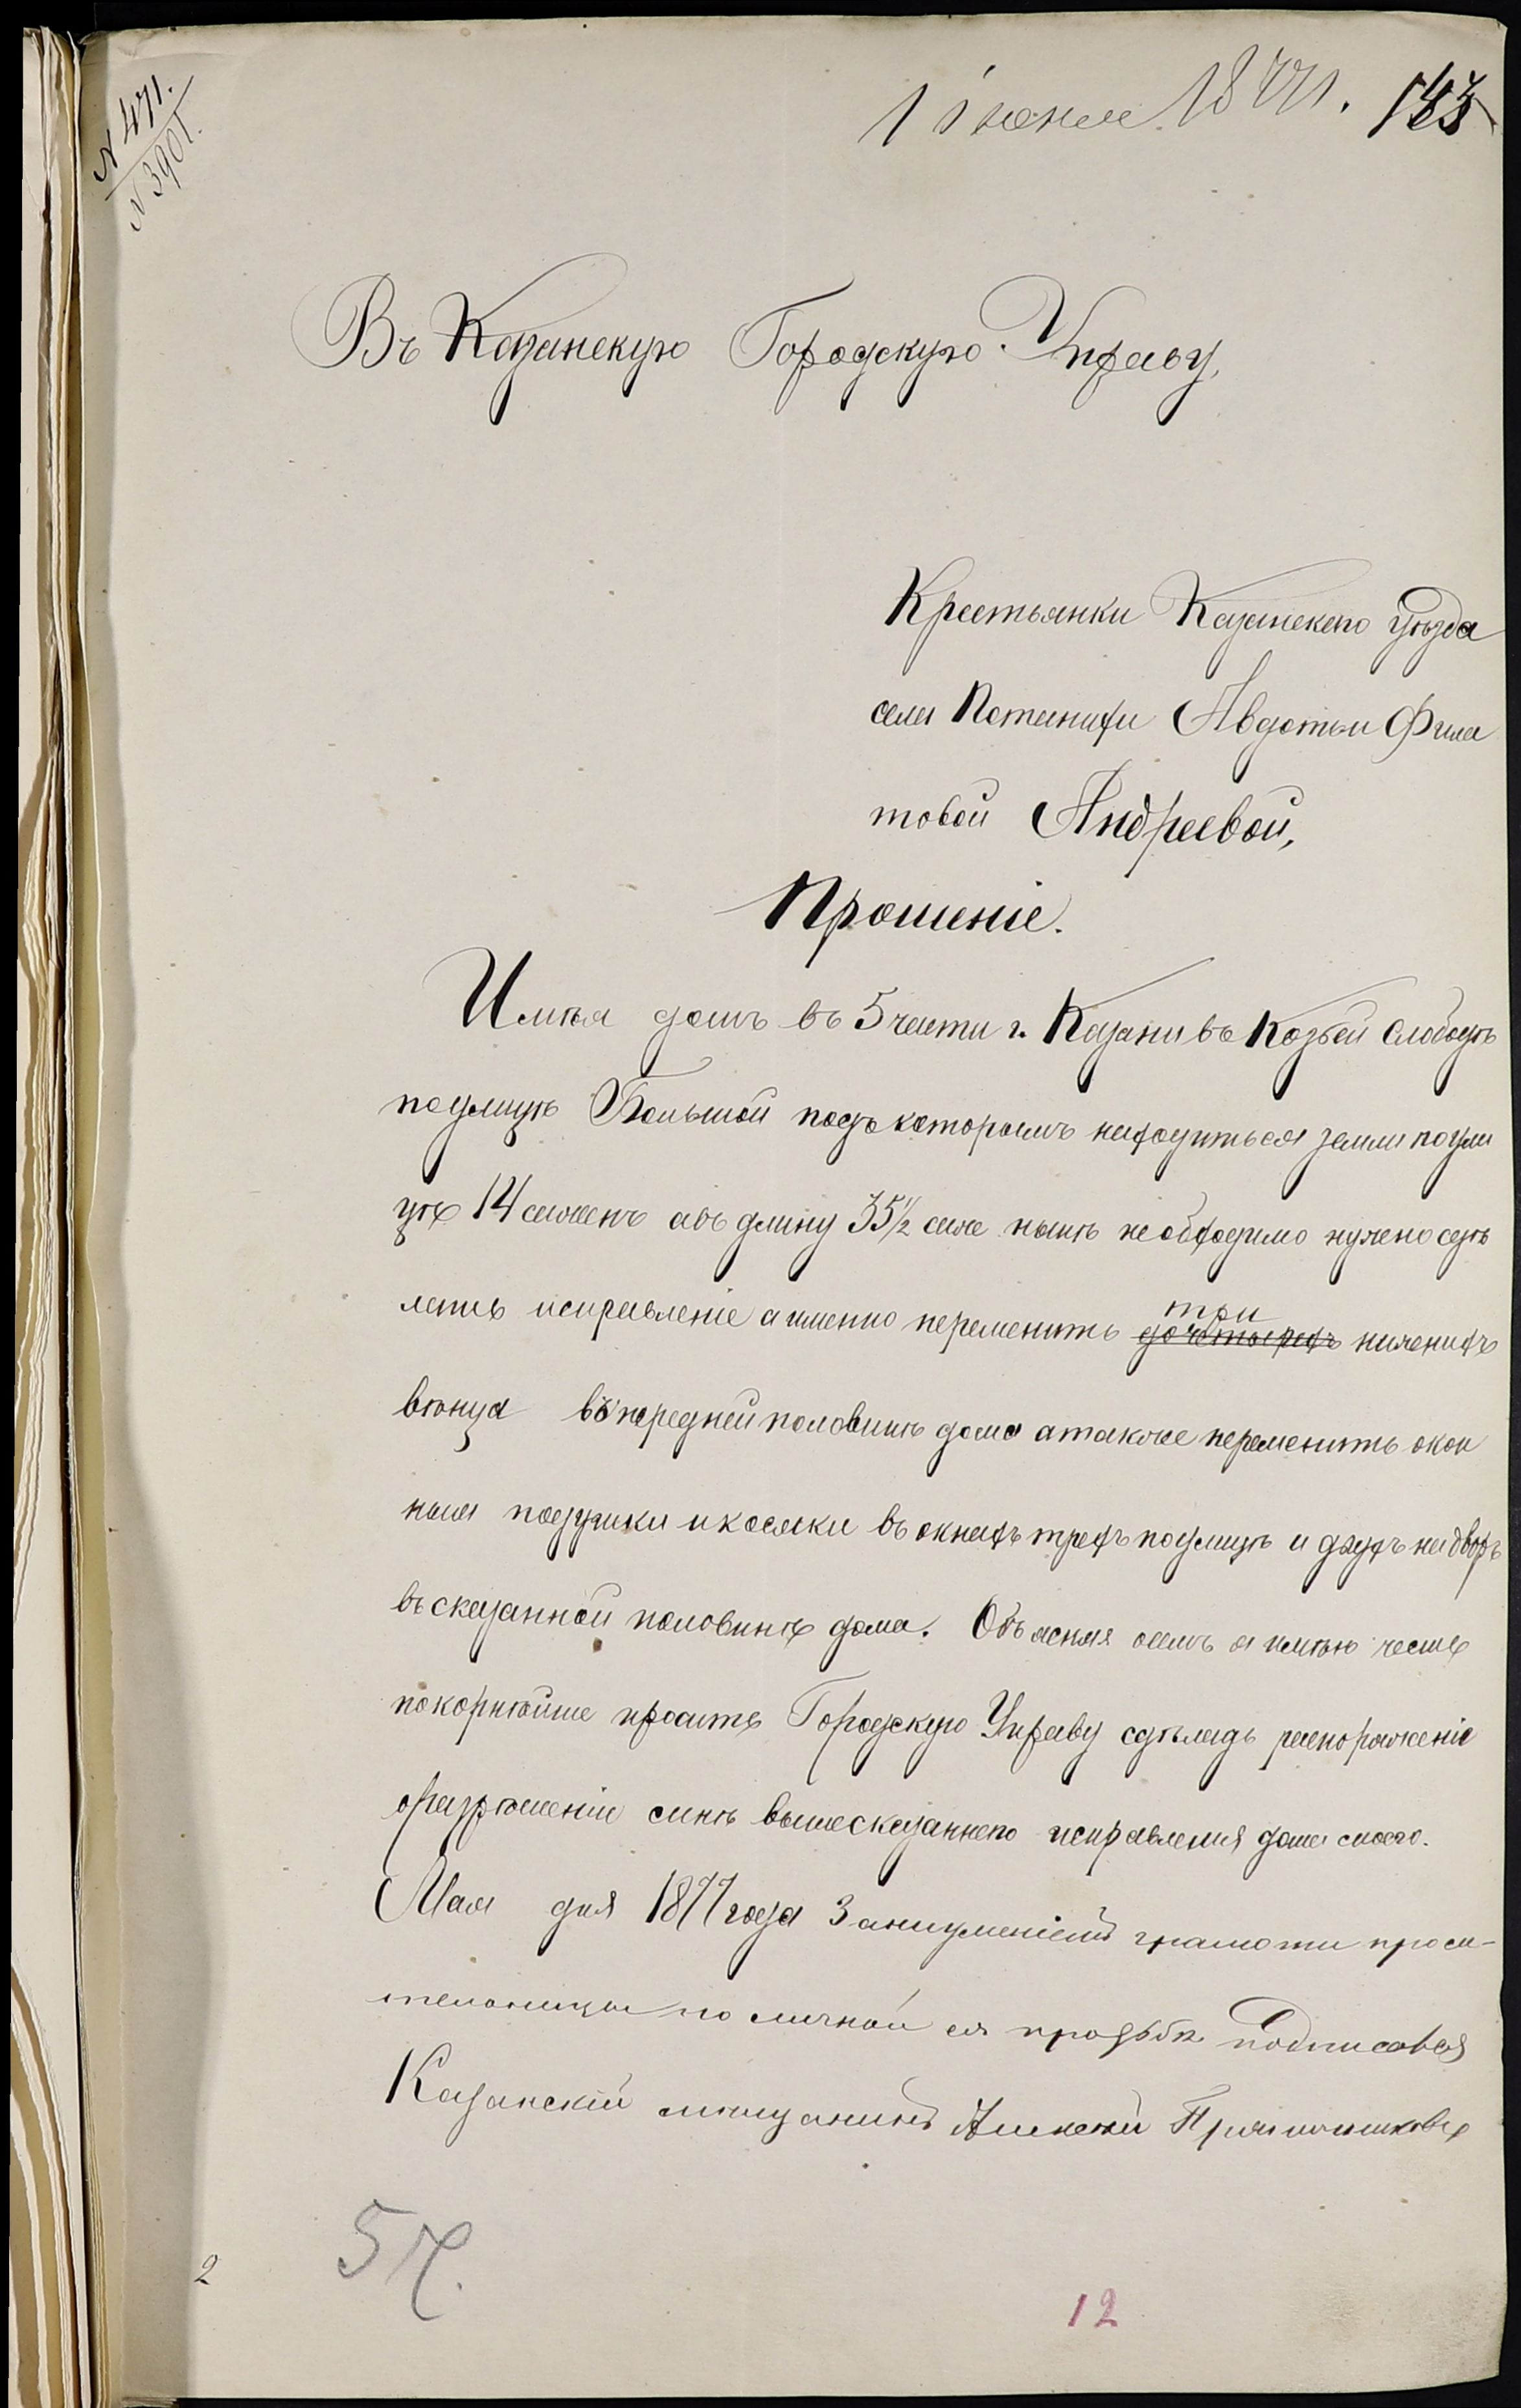 N 471.
N 3901.
1 іюня 1877.
Въ Казанскую Городскую Управу,
Крестьянки Казанскаго уѣзда
села Потанихи Авдотьи Фила
товой Андреевой,
Прошеніе.
Имѣя домъ въ 5 части г. Казани въ Козьей Слободѣ
по улицѣ Большой подъ которымъ находиться земли по ули
цѣ 14 сажень а въ длину 35 1/2 саж нынѣ необходимо нужно сдѣ
лать исправленіе а именно переменить три до четырехъ нижнихъ
вѣнца въ передней половинѣ дома а также переменить окон
ныя подушки и косяки въ окнахъ трехъ по улицѣ и двухъ на дворъ
въ сказанной половинѣ дома. Объясняя симъ я имѣю честь
покорнѣйше просить Городскую Управу сдѣлать распоряженіе
о разрѣшеніи мнѣ вышесказаннаго исправленія дома моего.
Мая дня 1877 года За неуменіемъ грамоти проси-
тельницы по личной ея прозьбѣ подписовся
Казанскій мещанинъ Алексей
5 Ч.
2
12